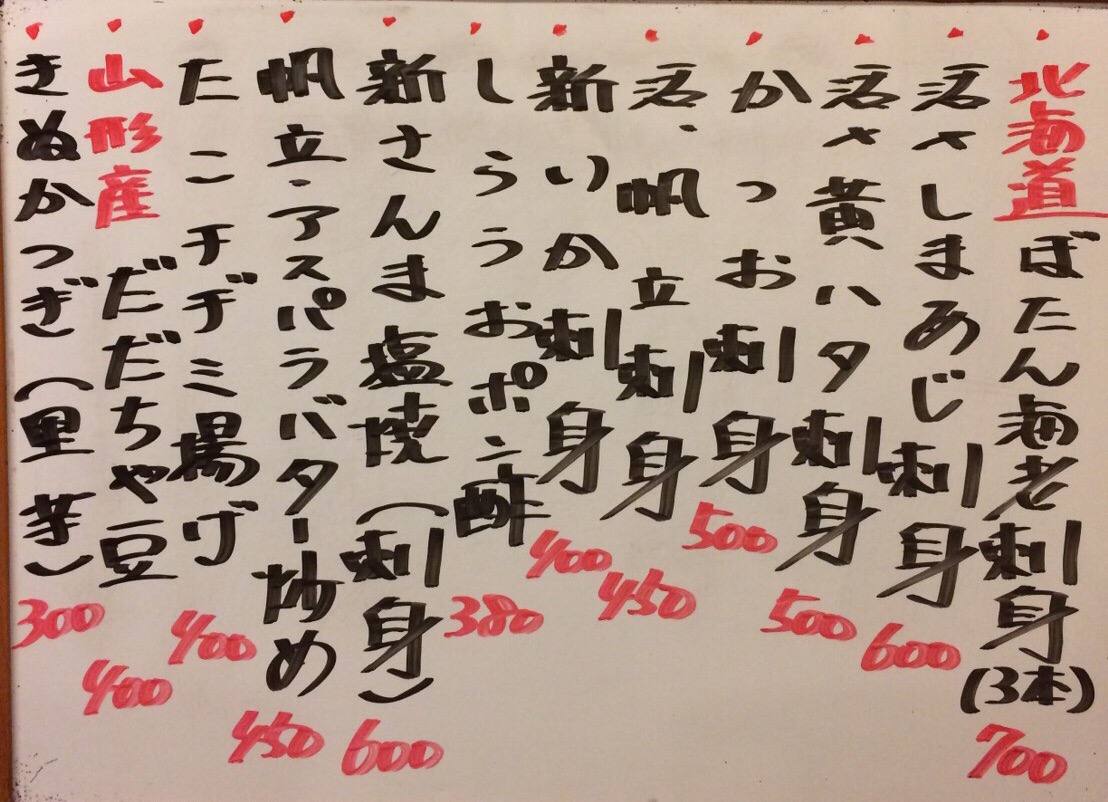 北海道ぼたん海老刺身(3本)700
活〆しまあじ刺身600
活〆黄ハタ刺身500
かつお刺身500
活・帆立刺身450
新いか刺身400
しらうおポン酢380
新さんま塩焼(刺身)600
帆立・アスパラバター炒め450
たこチヂミ揚げ400
山形産だだちゃ豆400
きぬかつぎ(里芋)300